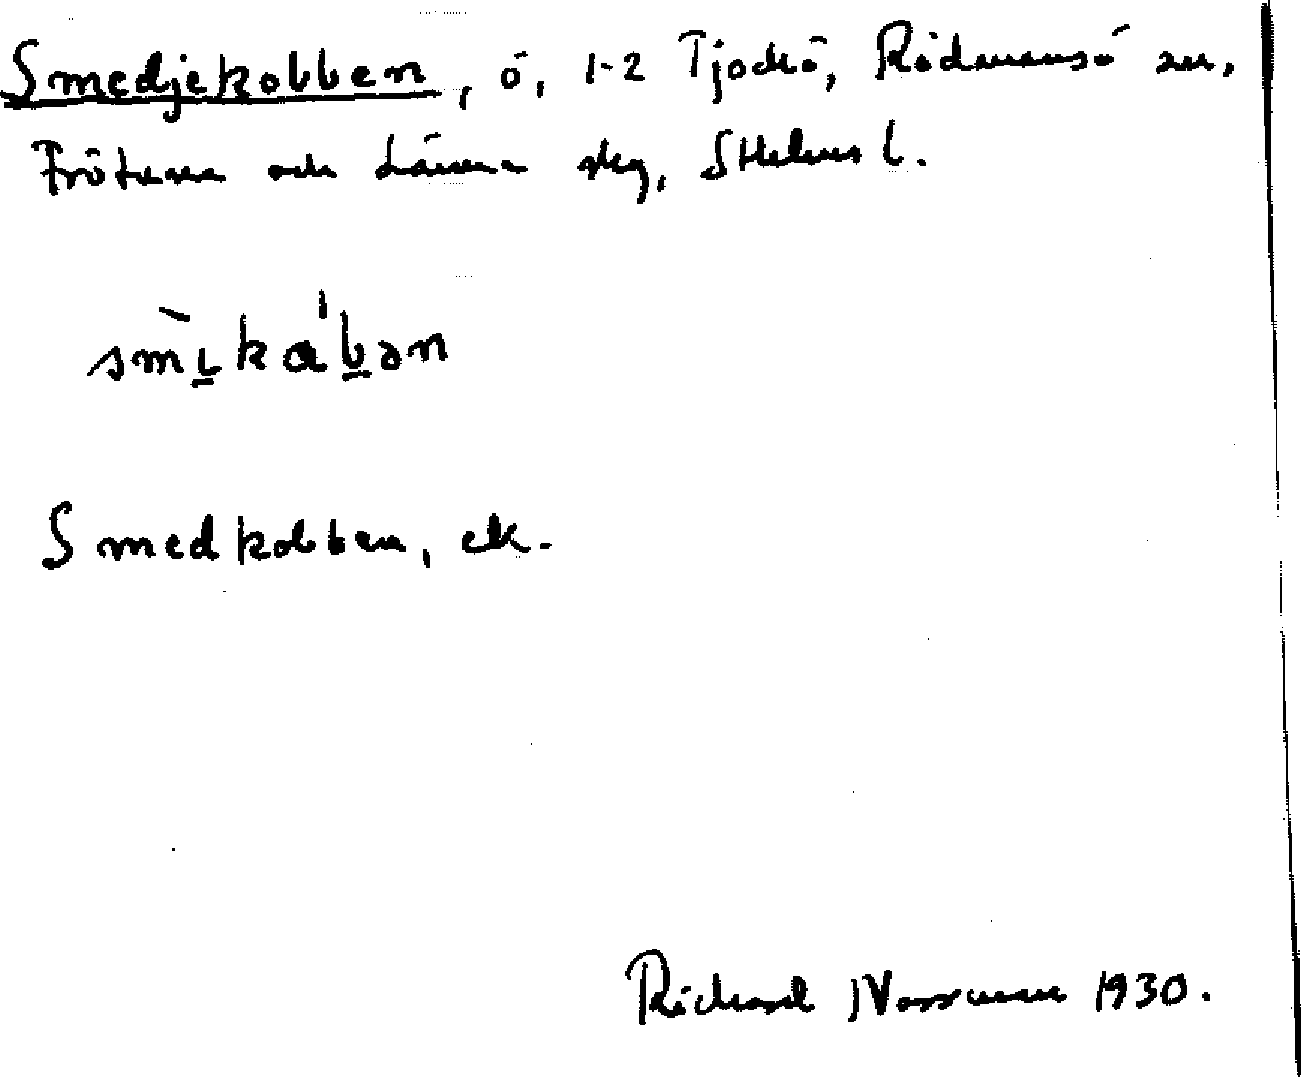 Smedjekobben, ö, 1-2 Tjockö, Rådmansö sn,
Frötuna och Länna skg, Sthlms l.
smɩ̀kábən
Smedkobben, ek.
Richard Norrman 1930.